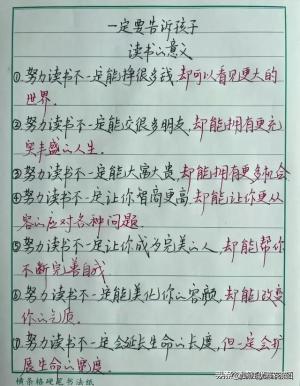 一定要告诉孩子
读书的意义
①努力读书不一定能挣很多钱,却可以看见更大的
世界.
②努力读书不一定能交很多朋友,却能拥有更充
实丰盛的人生.
③努力读书不一定能大富大贵,却能拥有更多机会
④努力读书不一定让你智商更高,却能让你更从
容的应对各种问题.
⑤努力读书不一定让你成为完美的人,却能帮你
不断完善自我
⑥努力读书不一定能美化你的容颜,却能改变
你的气质.
⑦努力读书不一定会延长生命的长度,但一定会扩
展生命的宽度.
横条格硬笔书法纸